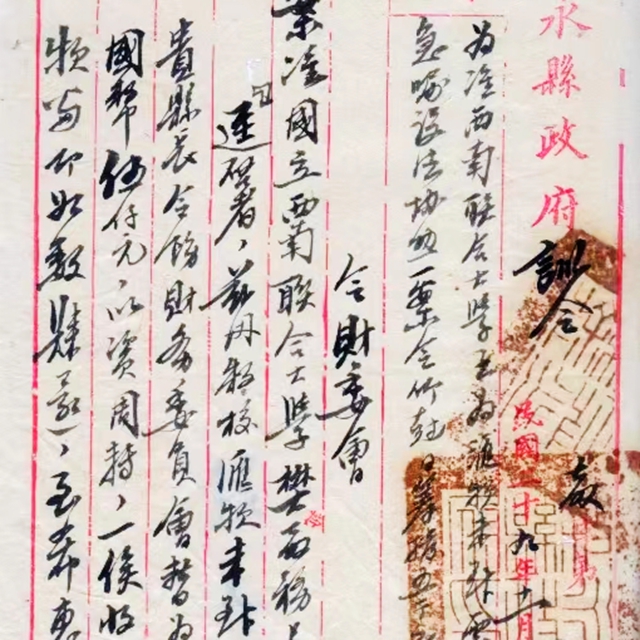 永縣政府訓令
民國二十九年十一月
為准西南聯合大學函為滙款未到
急需設法協助一案令仰赶日籌撥五
令財委會
案准國立西南聯合大學樊兩務
逕啓者，兹因敝校滙款未到
貴縣長令飭財務委員會暫為
國幣伍仟元，以資周轉，一俟收
款當即如數歸還，至希惠